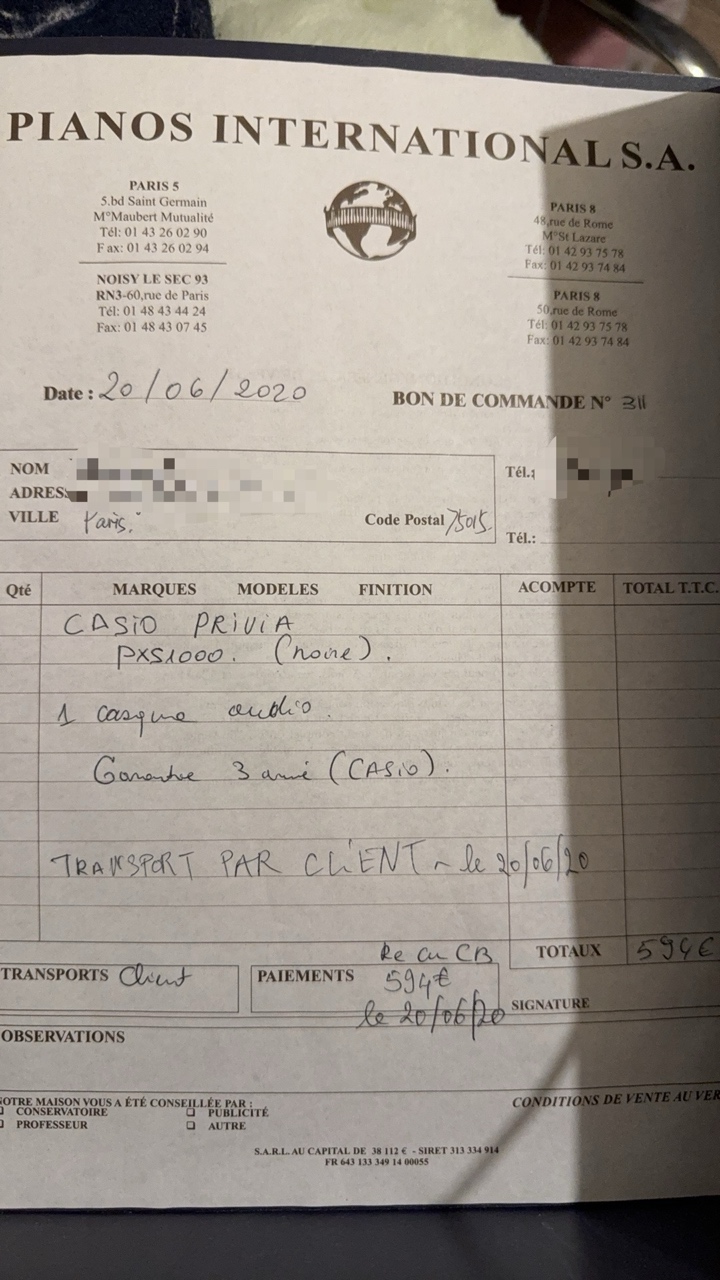 PIANOS INTERNATIONAL S.A.
PARIS 5
5.bd Saint Germain
M°Maubert Mutualité
Tél: 01 43 26 02 90
Fax: 01 43 26 02 94
NOISY LE SEC 93
RN3-60,rue de Paris
Tél: 01 48 43 44 24
Fax: 01 48 43 07 45
PARIS 8
48,rue de Rome
M°St Lazare
Tél: 01 42 93 75 78
Fax: 01 42 93 74 84
PARIS 8
50,rue de Rome
Tél: 01 42 93 75 78
Fax: 01 42 93 74 84
Date : 20/06/2020
BON DE COMMANDE N° 311
NOM
Tél.:
ADRES
VILLE Paris.
Code Postal 75015.
Tél.:
Qté MARQUES MODELES FINITION ACOMPTE TOTAL T.T.C.
CASIO PRIVIA
PXS1000. (noire).
1 casque audio.
Garantie 3 (CASIO).
TRANSPORT PAR CLIENT - le 20/06/20
TOTAUX 594€
TRANSPORTS Client
PAIEMENTS CB
594€
le 20/06/20
SIGNATURE
OBSERVATIONS
NOTRE MAISON VOUS A ÉTÉ CONSEILLÉE PAR :
CONSERVATOIRE
PUBLICITÉ
PROFESSEUR
AUTRE
CONDITIONS DE VENTE AU VER
S.A.R.L. AU CAPITAL DE 38 112 € - SIRET 313 334 914
FR 643 133 349 14 00055